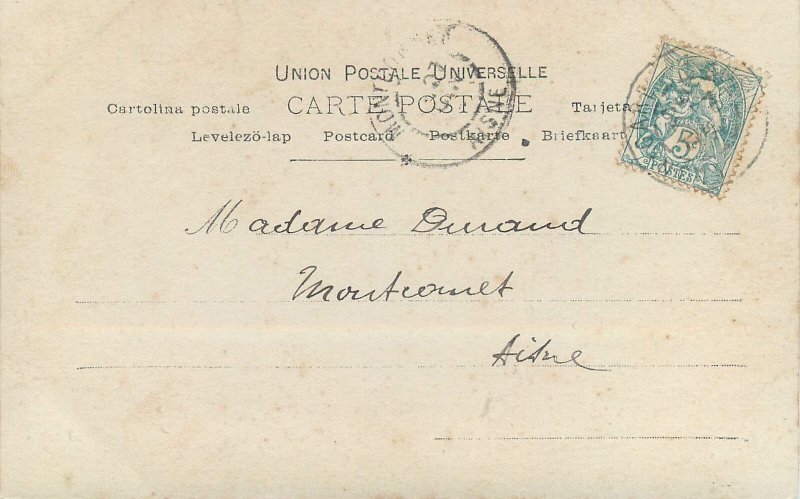 UNION POSTALE UNIVERSELLE
Cartolina postale CARTE POSTALE Tarjeta
Levelezö-lap Postcard Postkarte Briefkaart
5
POSTES
Madame Durand
Montcornet
Aisne